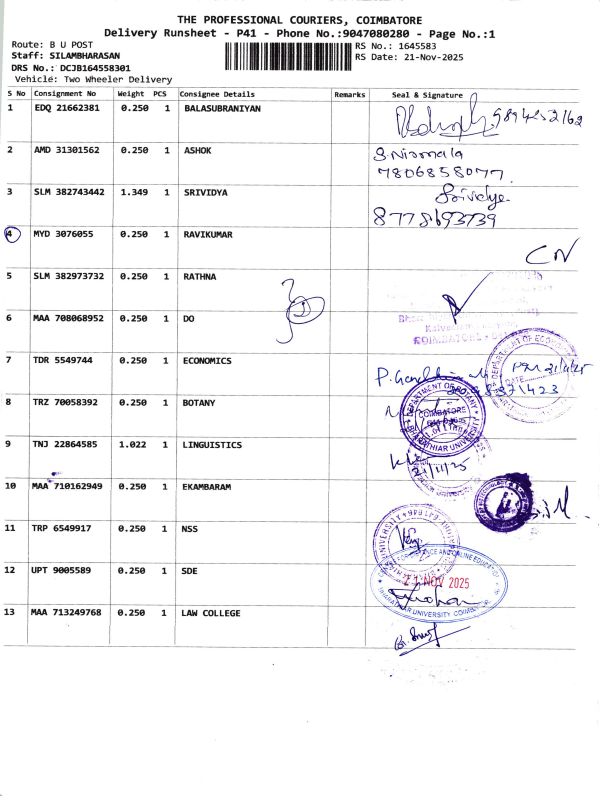 THE PROFESSIONAL COURIERS, COIMBATORE
Delivery Runsheet - P41 - Phone No.:9047080280 - Page No.:1
Route: B U POST
RS No.: 1645583
Staff: SILAMBHARASAN
RS Date: 21-Nov-2025
DRS No.: DCJB164558301
Vehicle: Two Wheeler Delivery
S No Consignment No Weight PCS Consignee Details Remarks Seal & Signature
1 EDQ 21662381 0.250 1 BALASUBRANIYAN
2 AMD 31301562 0.250 1 ASHOK S. Nirmala
7806858077
3 SLM 382743442 1.349 1 SRIVIDYA Srividya
8778693739
4 MYD 3076055 0.250 1 RAVIKUMAR CN
5 SLM 382973732 0.250 1 RATHNA
6 MAA 708068952 0.250 1 DO
COIMBATORE
7 TDR 5549744 0.250 1 ECONOMICS
DEPARTMENT OF
DATE
8 TRZ 70058392 0.250 1 BOTANY
DEPARTMENT OF BOTANY
COIMBATORE
BHARATHIAR UNIVERSITY
9 TNJ 22864585 1.022 1 LINGUISTICS
21/11/25
10 MAA 710162949 0.250 1 EKAMBARAM
11 TRP 6549917 0.250 1 NSS
12 UPT 9005589 0.250 1 SDE
21 NOV 2025
BHARATHIAR UNIVERSITY COIMBATORE
13 MAA 713249768 0.250 1 LAW COLLEGE